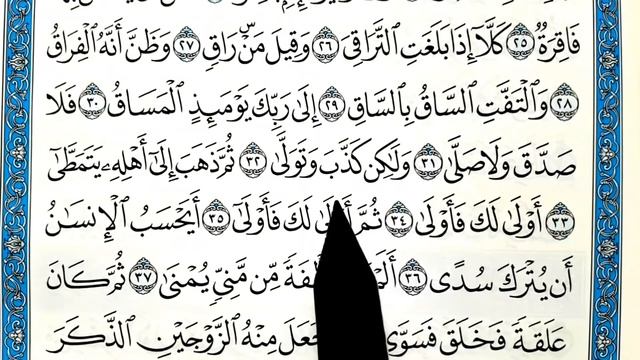 فَاقِرَةٌ ٢٥ كَلَّا إِذَا بَلَغَتِ التَّرَاقِيَ ٢٦ وَقِيلَ مَنْ رَاقٍ ٢٧ وَظَنَّ أَنَّهُ الْفِرَاقُ
٢٨ وَالْتَفَّتِ السَّاقُ بِالسَّاقِ ٢٩ إِلَى رَبِّكَ يَوْمَئِذٍ الْمَسَاقُ ٣٠ فَلَا
صَدَّقَ وَلَا صَلَّى ٣١ وَلَكِن كَذَّبَ وَتَوَلَّى ٣٢ ثُمَّ ذَهَبَ إِلَى أَهْلِهِ يَتَمَطَّى
٣٣ أَوْلَى لَكَ فَأَوْلَى ٣٤ ثُمَّ لَكَ فَأَوْلَى ٣٥ أَيَحْسَبُ الْإِنسَانُ
أَن يُتْرَكَ سُدًى ٣٦ مِّن مَّنِيٍّ يُمْنَى ٣٧ ثُمَّ كَانَ
عَلَقَةً فَخَلَقَ فَسَوَّى مِنْهُ الزَّوْجَيْنِ الذَّكَرَ